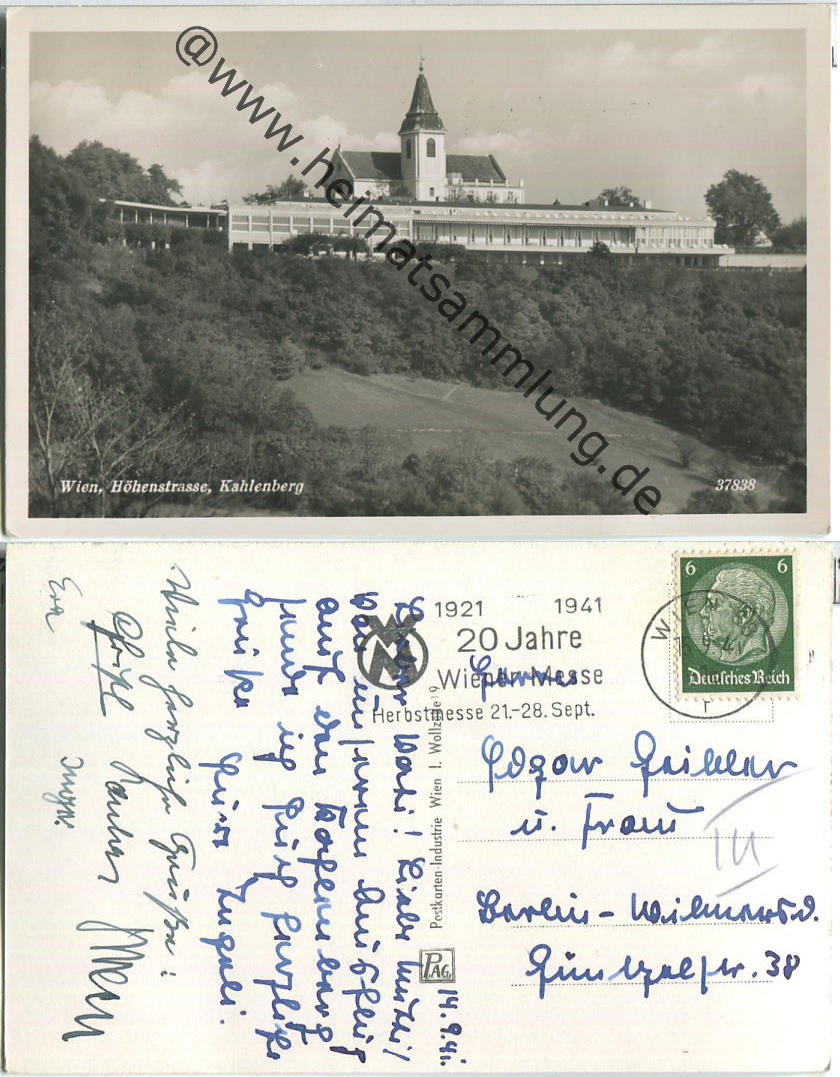 @www.heimatsammlung.de
Wien, Höhenstrasse, Kahlenberg
37838
1921 1941
20 Jahre
Wiener Messe
Herbstmesse 21.-28. Sept.
WM
6 6
Deutsches Reich
WIEN
Herrn
Edgar
u. Frau
Berlin-Wilmersd.
Güntzelstr. 38
III
Postkarten-Industrie Wien I. Wollzeile 9
PAG
14.9.41.
Lieber Vati! Liebe Mutti!
Von unserem Ausflug
auf den Kahlenberg
sende ich Euch herzliche
Grüße Eure
Viele herzliche Grüße!
Inge.